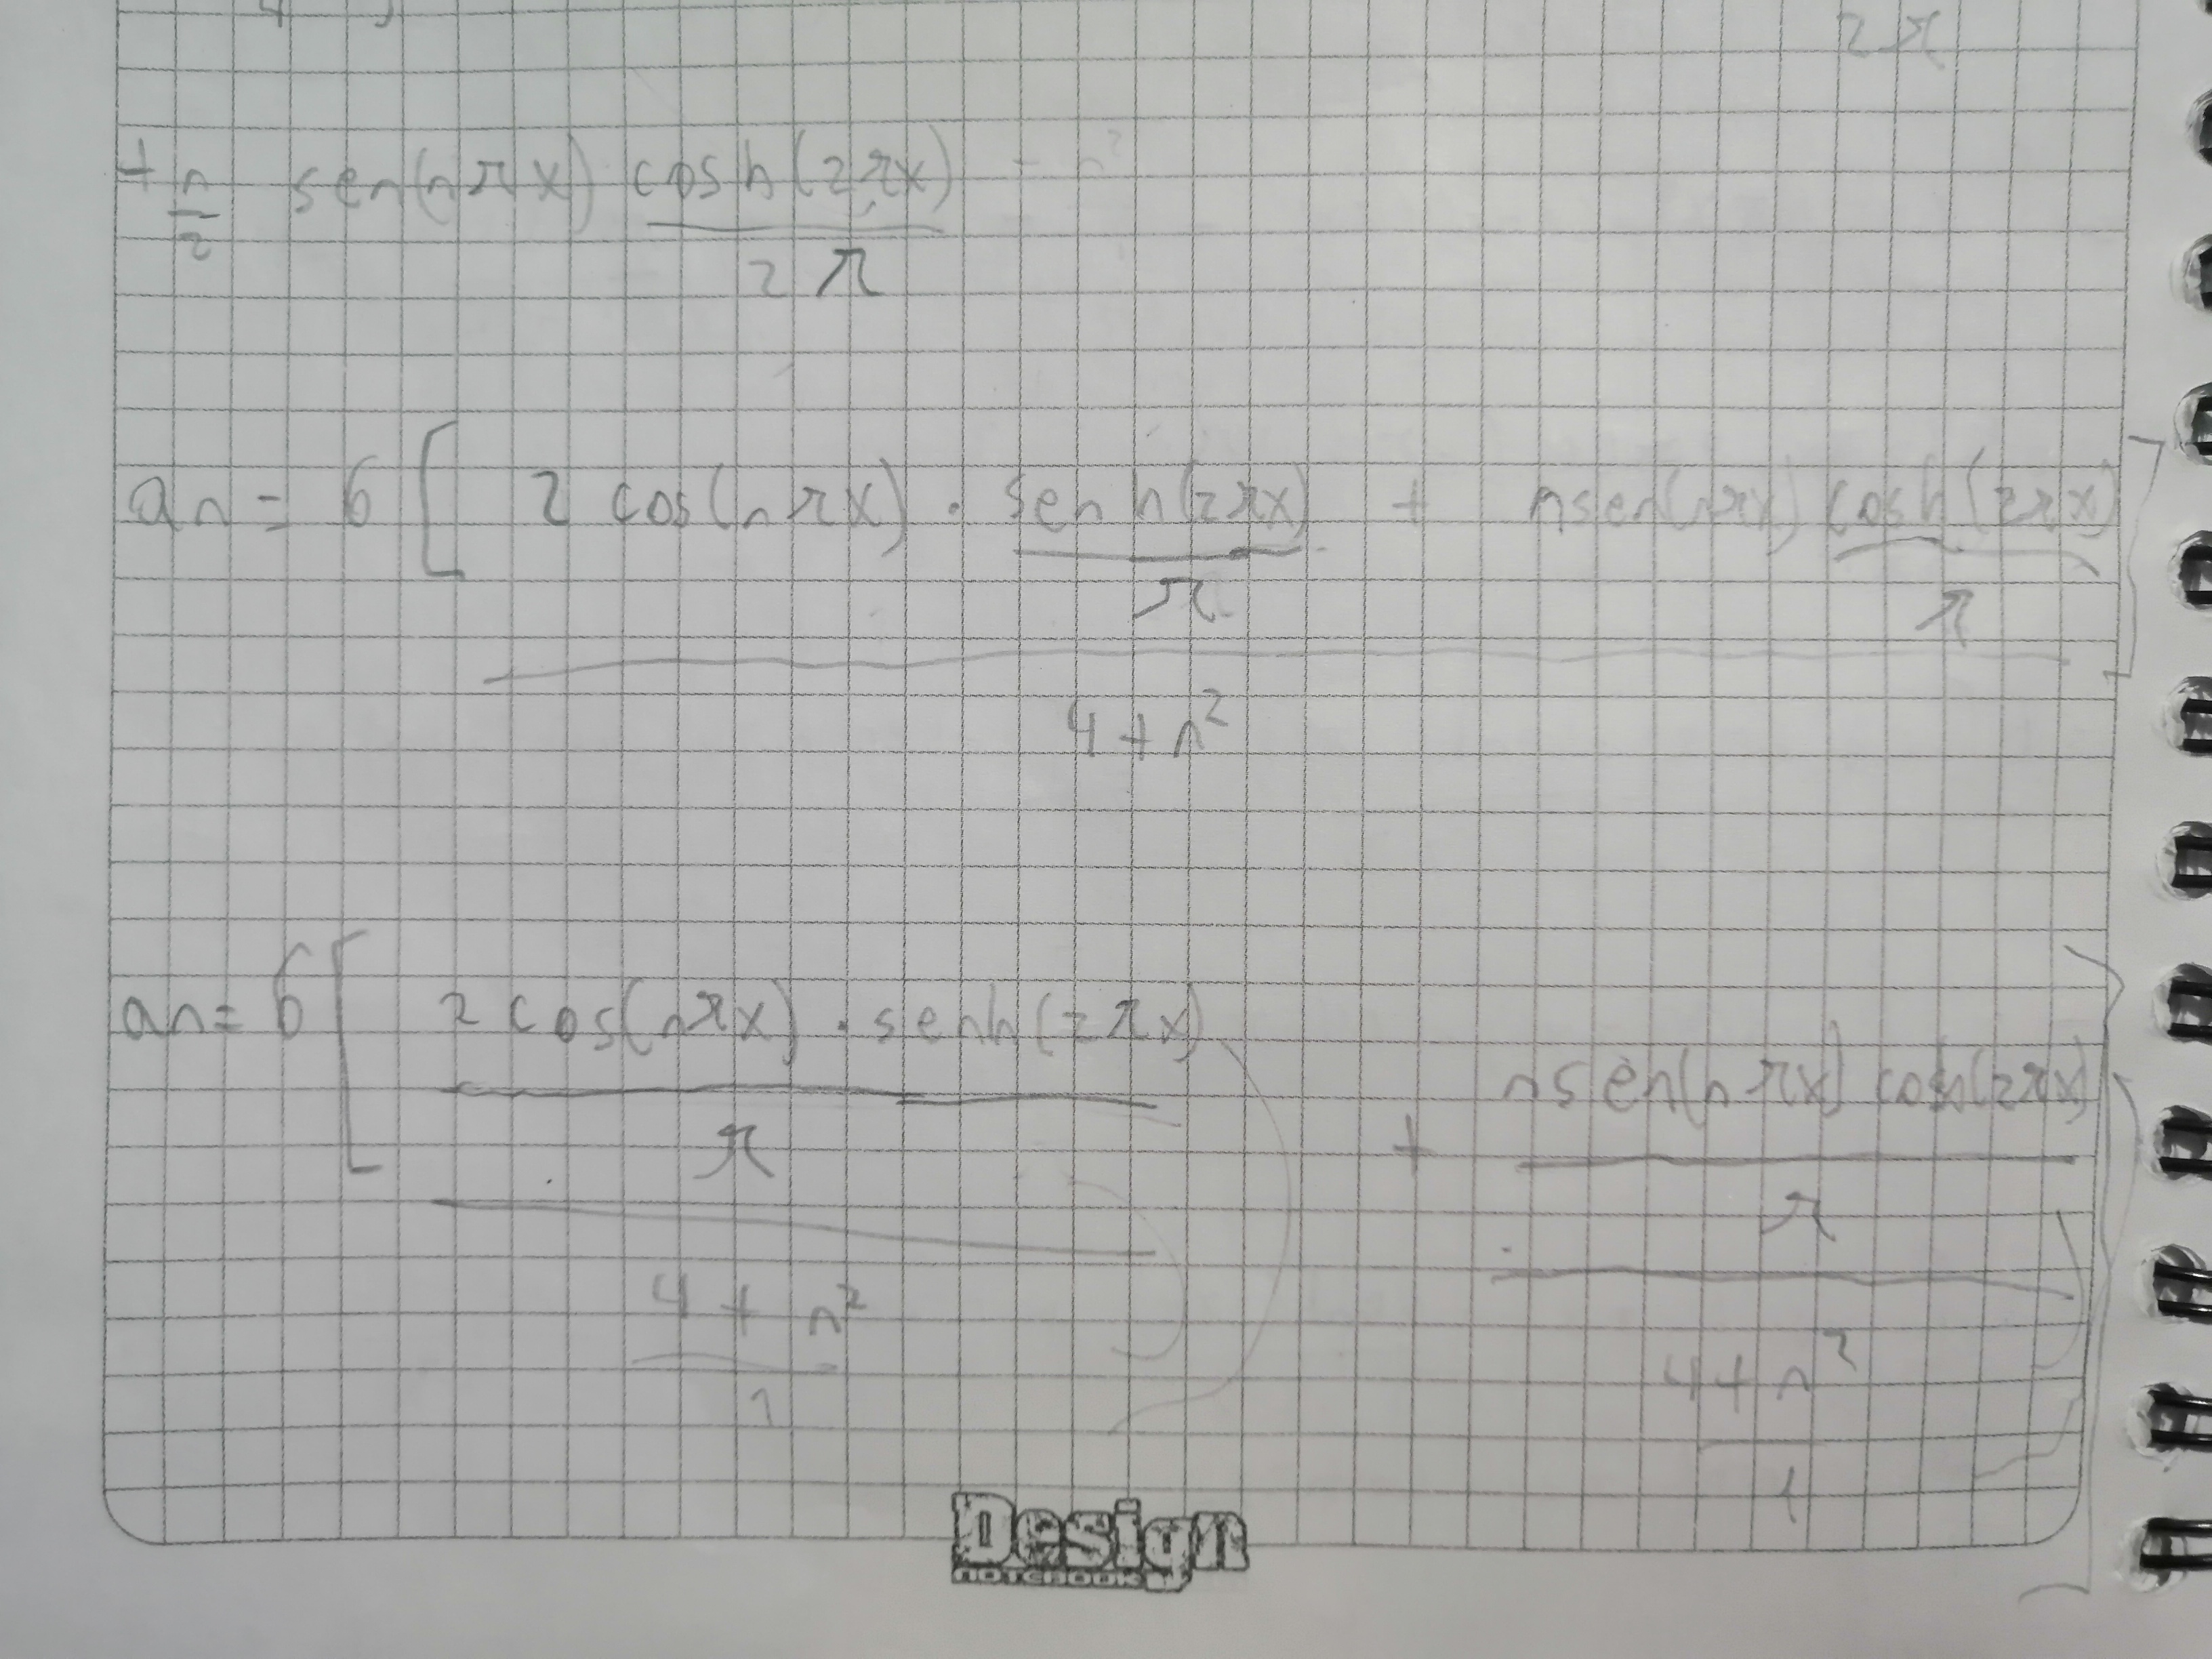 2π
+ n/2 sen(nπx) cosh(2πx)/2π
an = 6 [ 2 cos(nπx) · senh(2πx)/π + nsen(nπx) cosh(2πx)/π ]
4 + n²
an = 6 [ 2 cos(nπx) · senh(2πx) + nsen(nπx) cosh(2πx)
π π
4 + n² 4 + n²
1 1
Design
NOTEBOOK